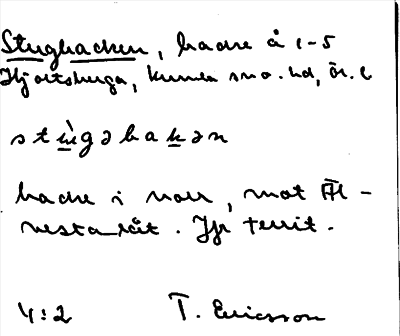 Stugbacken, backe å 1-5
Hjortsberga, Kumla sn o. hd, Ör. l
stùgəbakən
backe i norr, mot Äl-
vesta råt. Jfr territ.
4:2 T. Ericsson